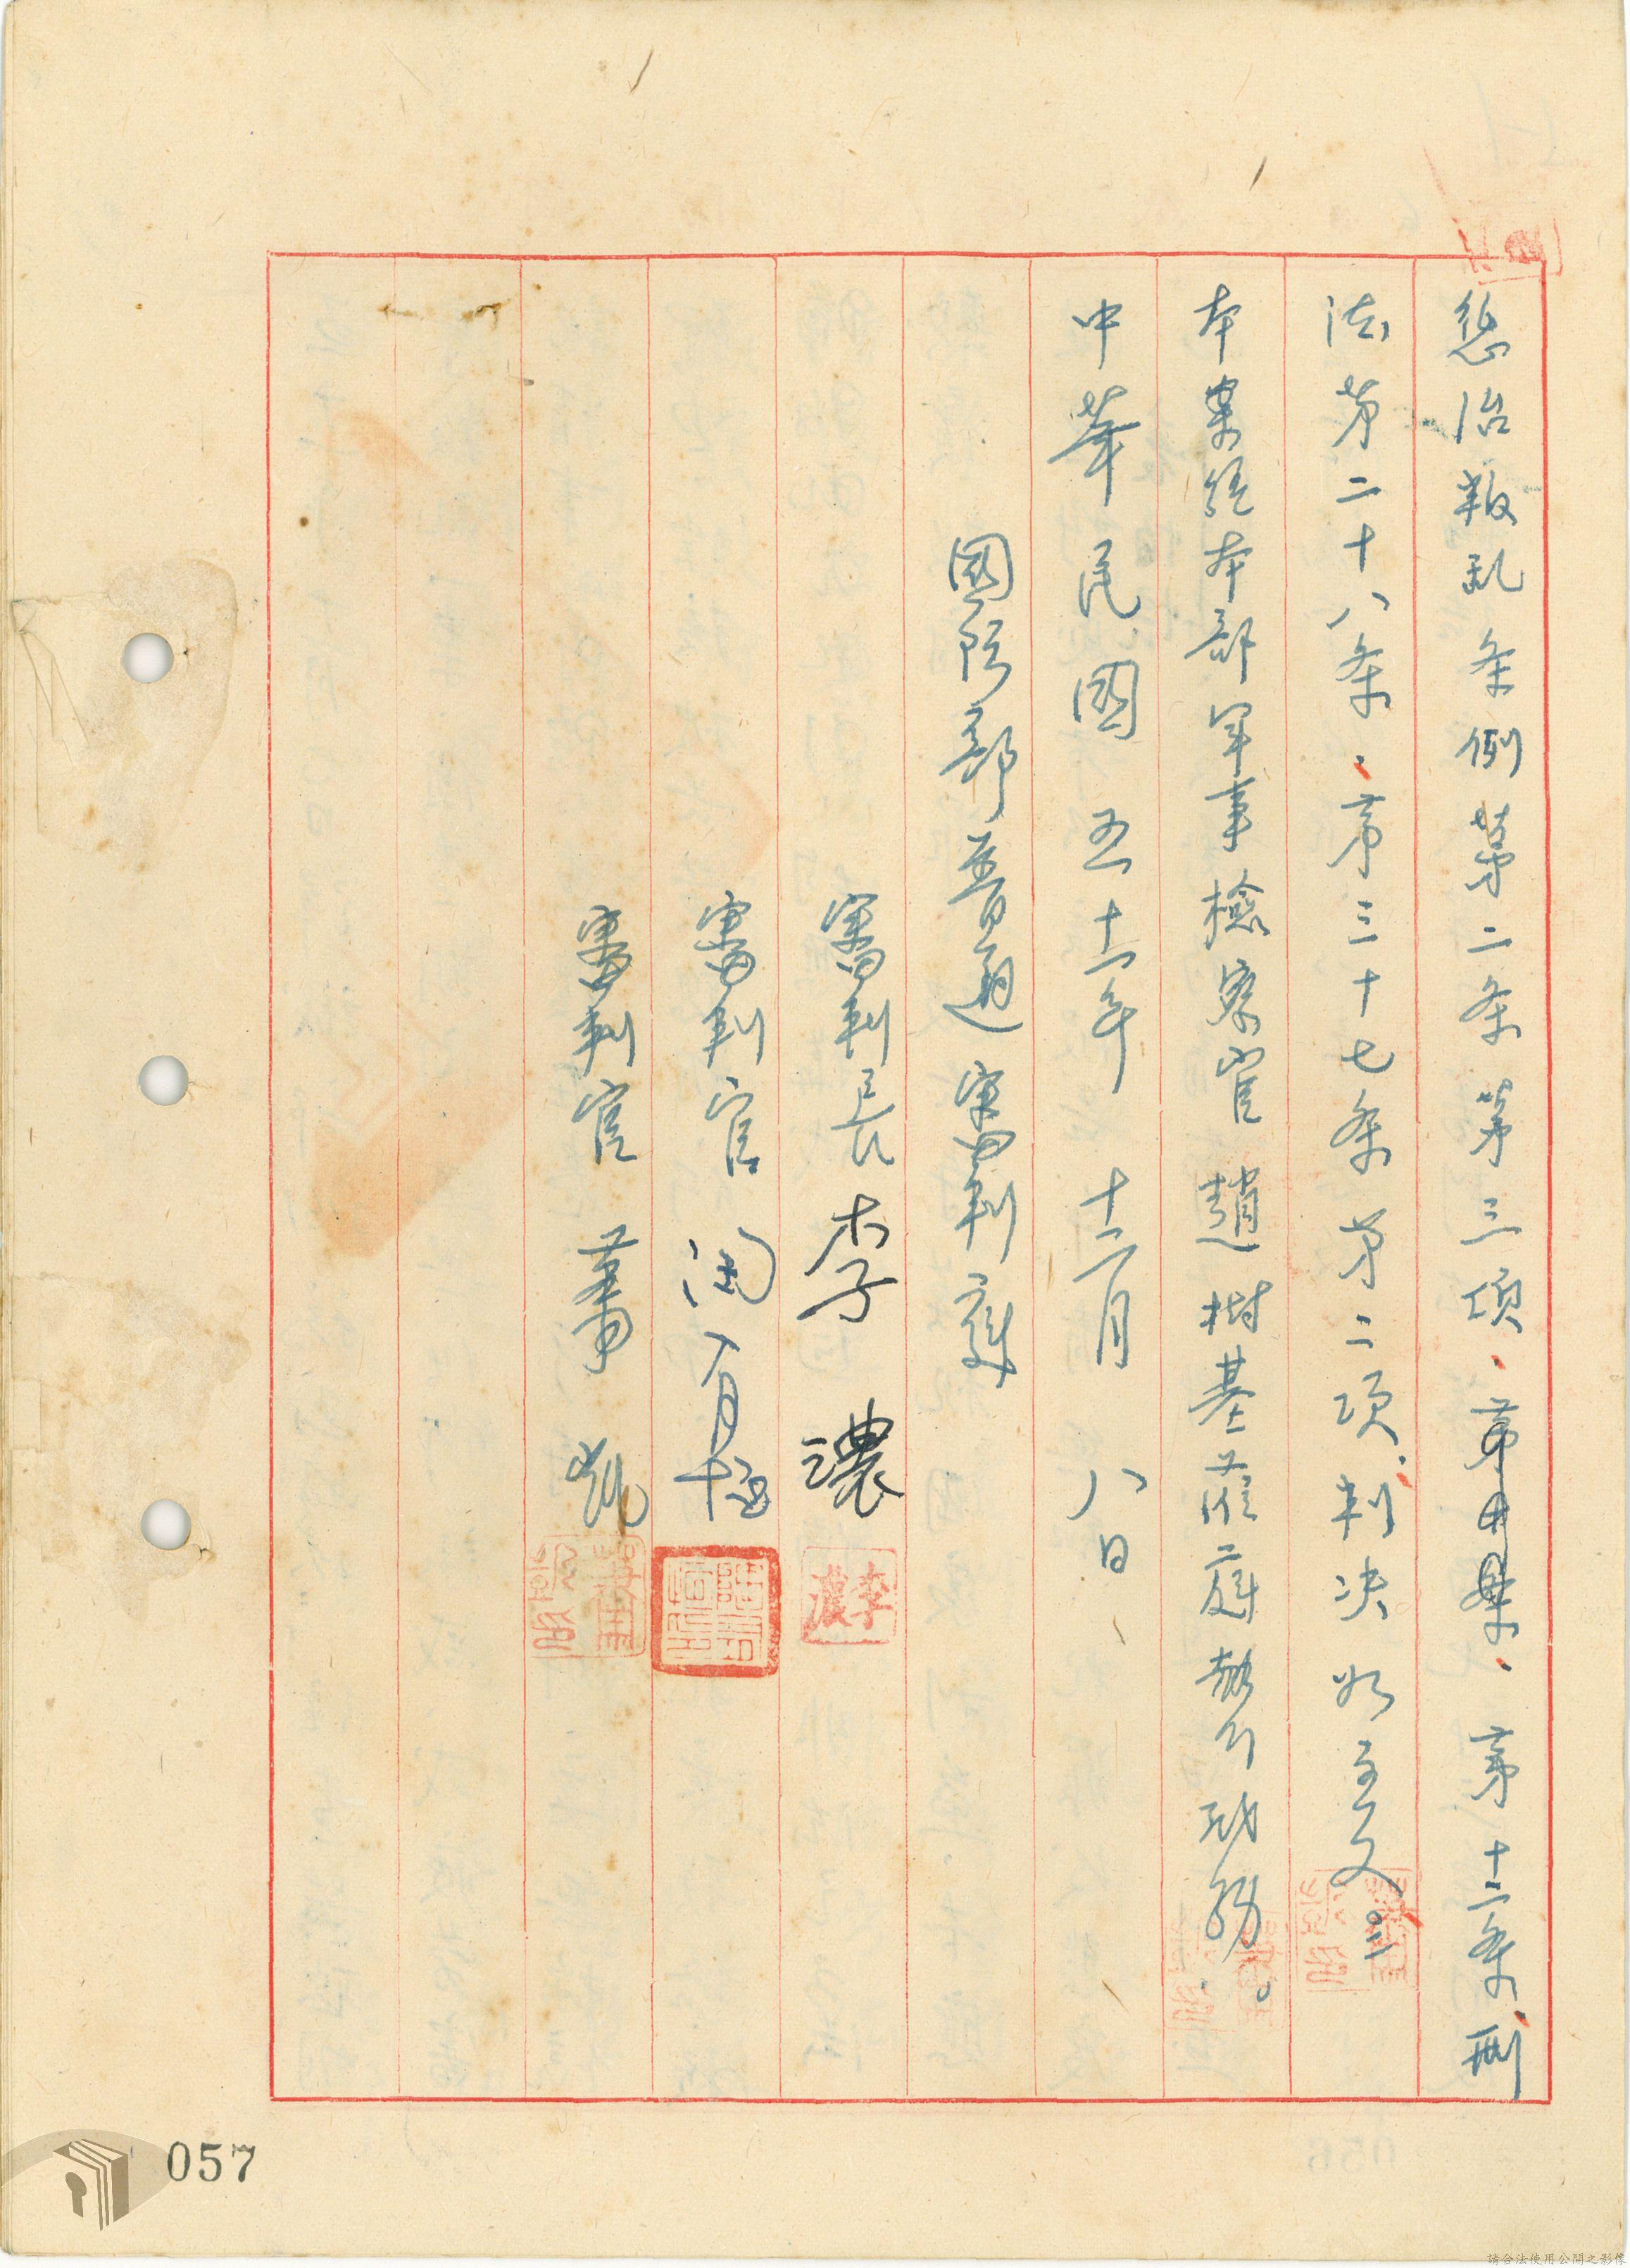 惩治叛乱条例第二条第三项、第十二条、刑
法第二十八条、第三十七条第二项、判决如主文。
本案經本部军事檢察官趙樹基蒞庭執行职務。
中華民國五十一年十二月八日
國防部普通審判庭
審判長 李濃
李濃
審判官
審判官
057
請合法使用公開之影像